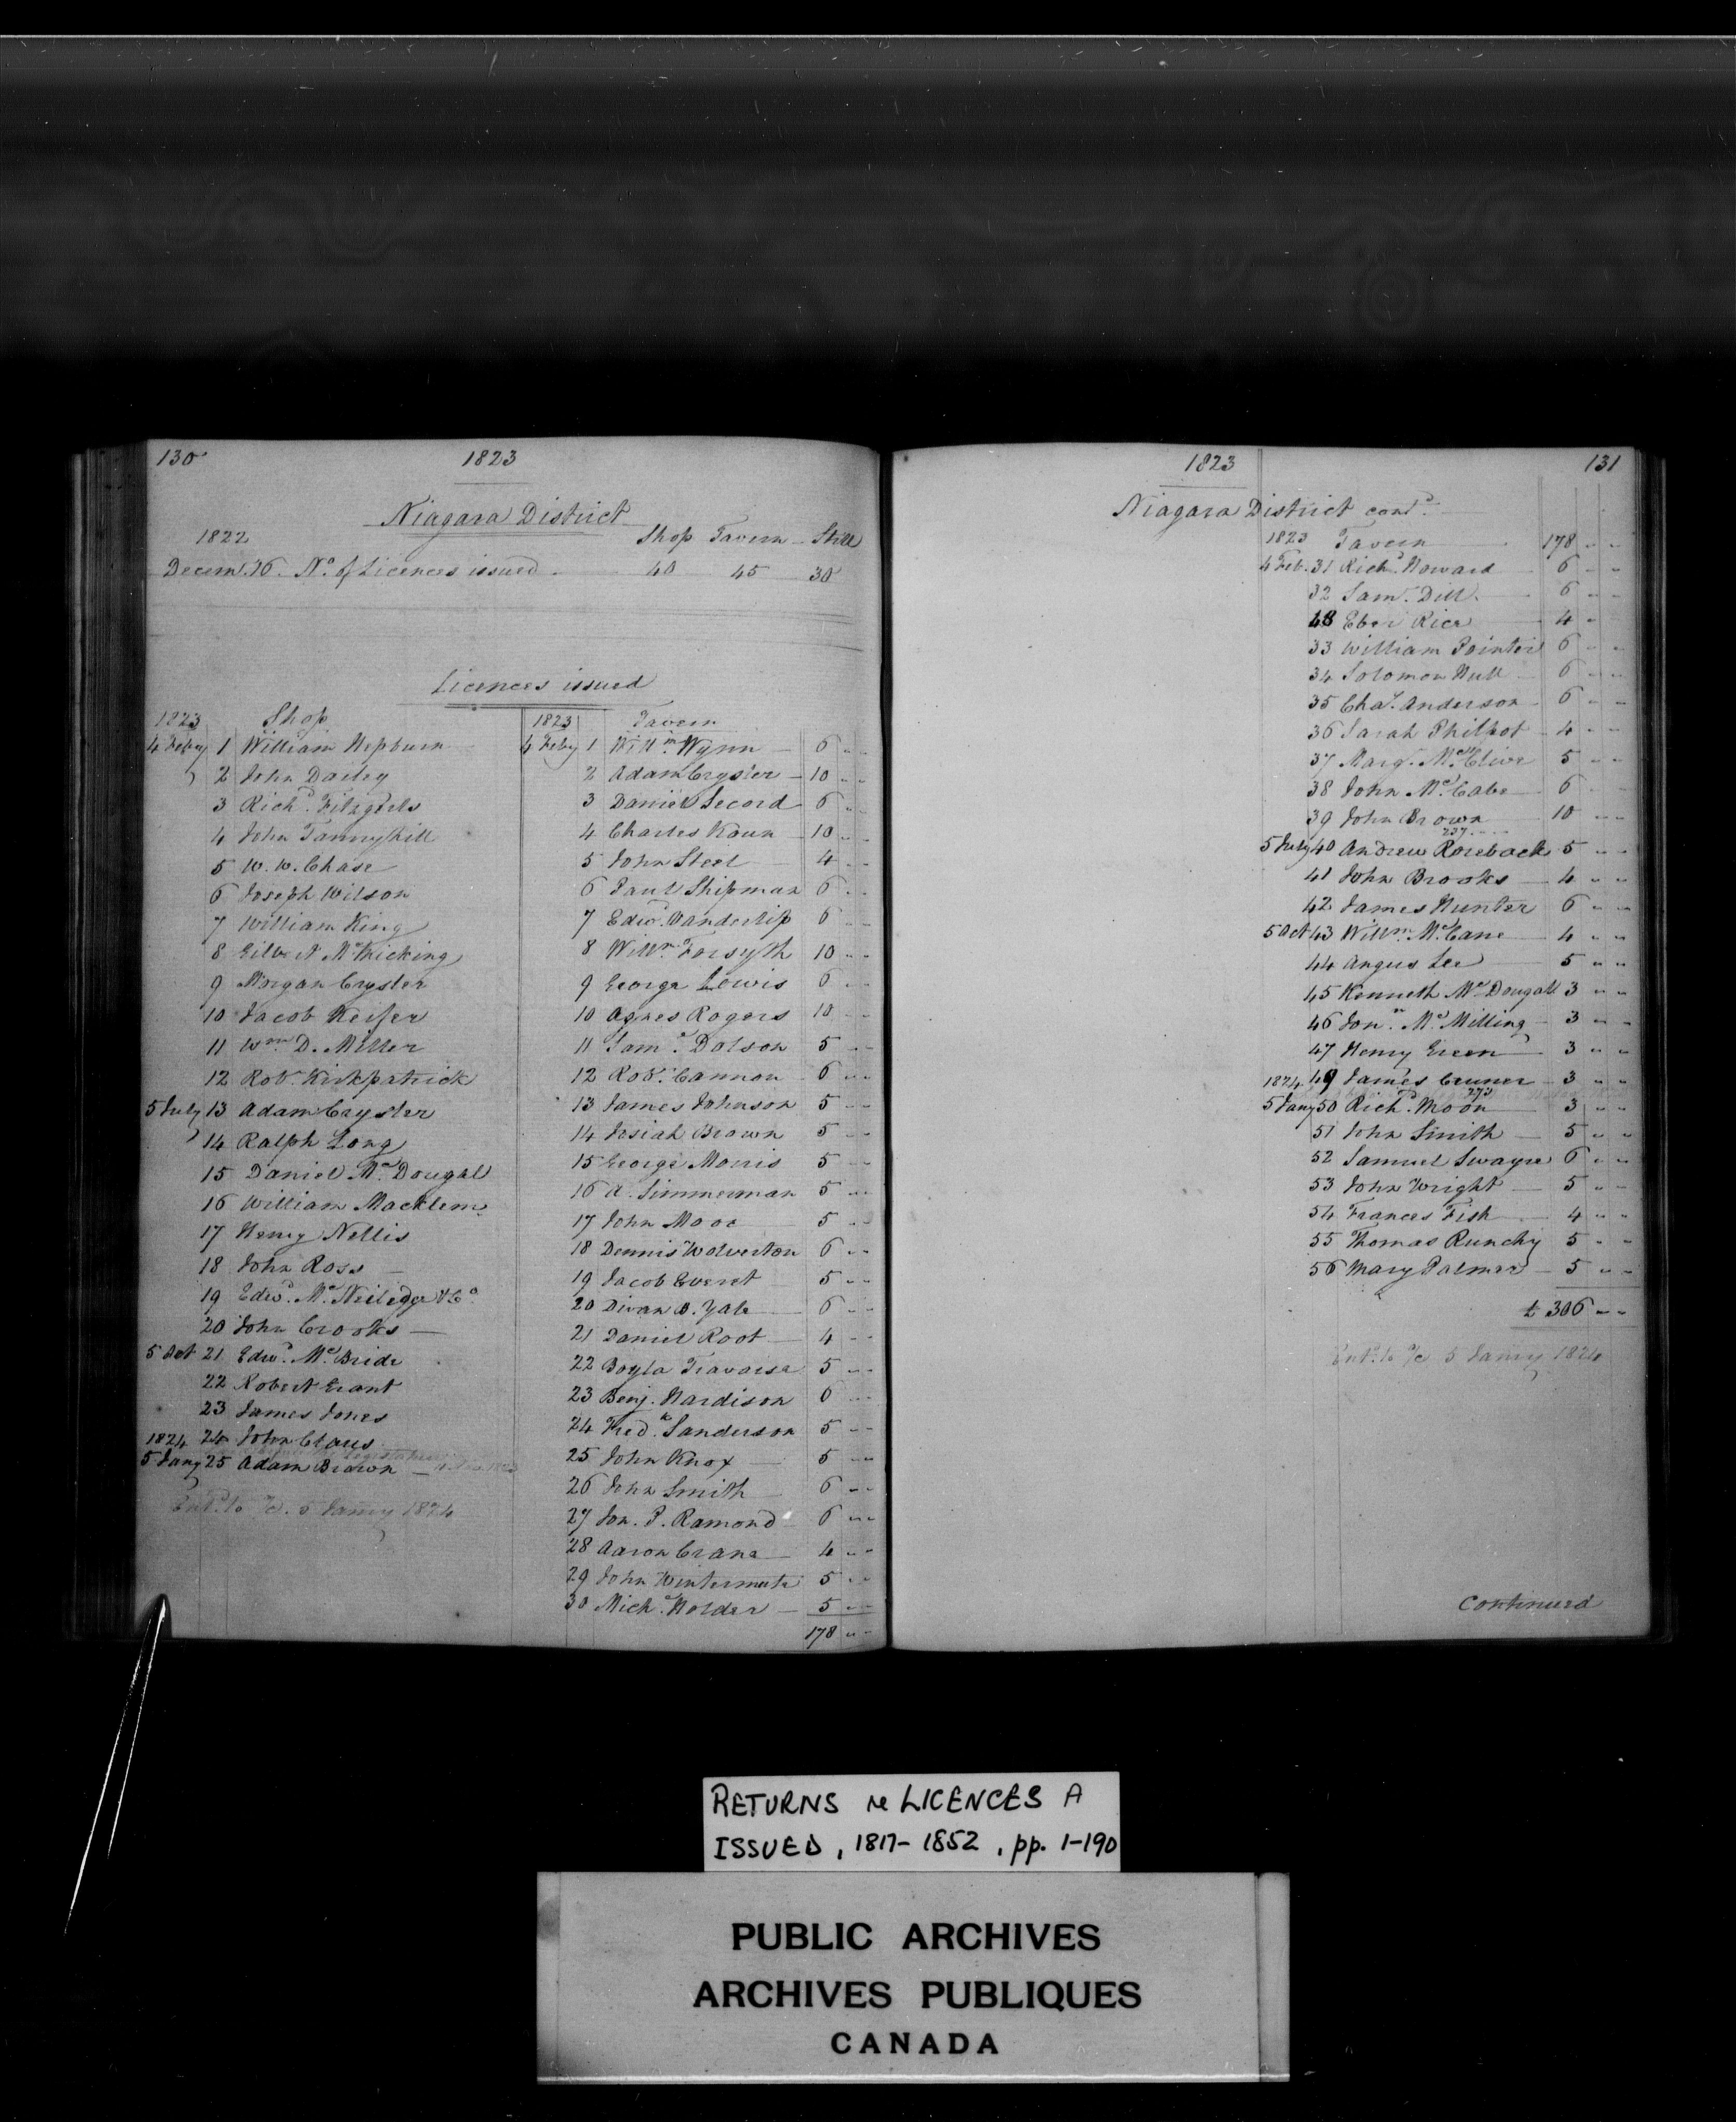 130 1823
Niagara District
1822 Shop Tavern Still
Decem. 26. No. of Licences issued 40 45 30
Licences issued
1823 Shop
4 Feby 1 William Hepburn
2 John Dailey
3 Richd. Fitzgrels
4 John Tannyhill
5 W. W. Chase
6 Joseph Wilson
7 William King
8 Gilbert McMicking
9 Morgan Crysler
10 Jacob Keifer
11 Wm. D. Miller
12 Robt. Kirkpatrick
5 July 13 Adam Crysler
14 Ralph Long
15 Daniel McDougal
16 William Macklem
17 Henry Nellis
18 John Ross
19 Edwd. McNeiledge & Co.
20 John Crooks
5 Oct 21 Edwd. McBride
22 Robert Grant
23 James Jones
1824 24 John Claus
5 Jany 25 Adam Brown
Entd. to a/c. 5 Janry 1824
1823 Tavern
4 Feby 1 Willm. Wynn 6 " "
2 Adam Crysler 10 " "
3 Daniel Secord 6 " "
4 Charles Koun 10 " "
5 John Steel 4 " "
6 Paul Shipman 6 " "
7 Edwd. Vanderlip 6 " "
8 Willm. Forsyth 10 " "
9 George Lewis 6 " "
10 Agnes Rogers 10 " "
11 Saml. Dolson 5 " "
12 Robt. Cannon 6 " "
13 James Johnson 5 " "
14 Josiah Brown 5 " "
15 George Morris 5 " "
16 A. Simmerman 5 " "
17 John Mooe 5 " "
18 Dennis Wolverton 6 " "
19 Jacob Everet 5 " "
20 Divan D. Yale 6 " "
21 Daniel Root 4 " "
22 Boyla Travarse 5 " "
23 Benj. Hardison 6 " "
24 Fredk. Sanderson 5 " "
25 John Knox 5 " "
26 John Smith 6 " "
27 Jon. P. Ramond 6 " "
28 Aaron Crane 4 " "
29 John Wintermute 5 " "
30 Michl. Holder 5 " "
178 " "
1823 131
Niagara District contd.
1823 Tavern 178 " "
4 Feb. 31 Richd. Howard 6 " "
32 Saml. Dill 6 " "
48 Eber Rice 4 "
33 William Pointer 6 " "
34 Solomon Hull 6 " "
35 Chas. Anderson 6 " "
36 Sarah Philpot 4 " "
37 Marg. McClive 5 " "
38 John McCabe 6
39 John Brown 10 " "
237
5 July 40 Andrew Roseback 5 " "
41 John Brooks 4 " "
42 James Hunter 6 " "
5 Oct 43 Willm. McCane 4 " "
44 Angus Lee 5 " "
45 Kenneth McDougall 3 " "
46 Jonn. McMilling 3 " "
47 Henry Green 3 " "
1824 49 James Cruner 3 " "
273
5 Jany 50 Richd. Moon 3 " "
51 John Smith 5 " "
52 Samuel Swayze 6 " "
53 John Wright 5 " "
54 Frances Fish 4 " "
55 Thomas Runchy 5 " "
56 Mary Palmer 5 " "
£ 306 " "
Entd. to a/c 5 Janry 1824
Continued
RETURNS re LICENCES A
ISSUED, 1817-1852, pp. 1-190
PUBLIC ARCHIVES
ARCHIVES PUBLIQUES
CANADA